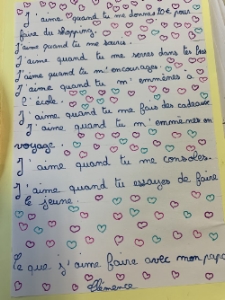 J'aime quand tu me donnes 20€ pour
faire du shopping.
J'aime quand tu me souris.
J'aime quand tu me serres dans les bras
J'aime quand tu m'encourages.
J'aime quand tu m'emmènes à
l'école.
J'aime quand tu me fais des cadeaux
J'aime quand tu m'emmènes en
voyage.
J'aime quand tu me consoles.
J'aime quand tu essayes de faire
le jeune.
Ce que j'aime faire avec mon papa
Clémence